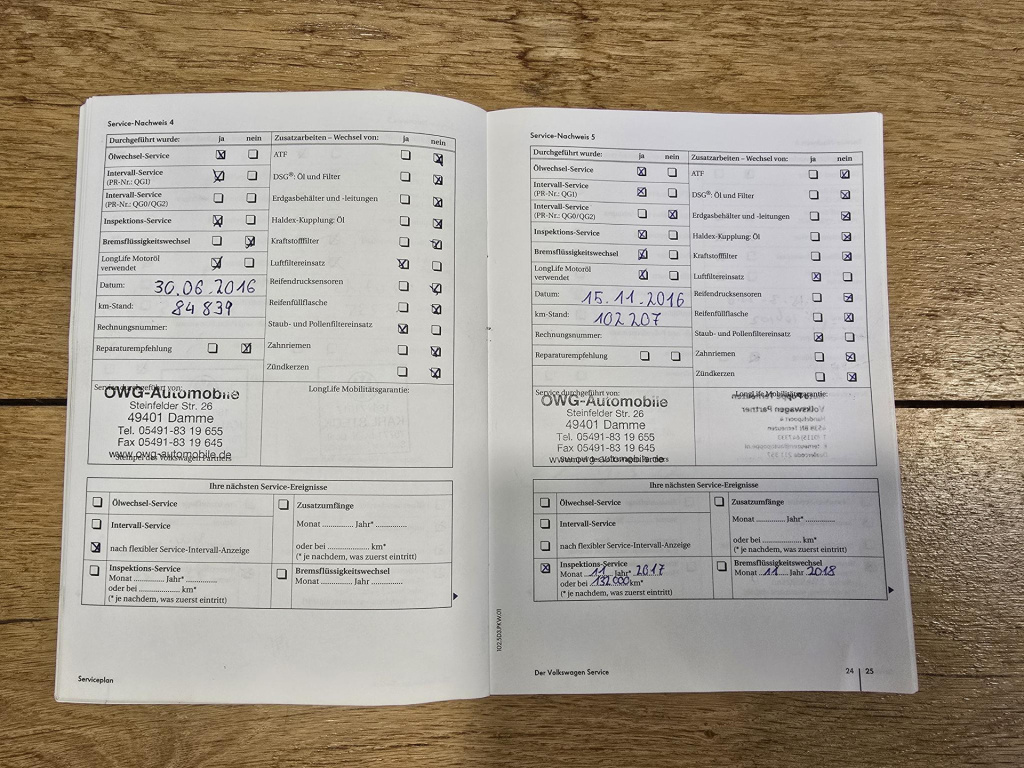 Service-Nachweis 4
Durchgeführt wurde: ja nein
Ölwechsel-Service
Intervall-Service
(PR-Nr.: QG1)
Intervall-Service
(PR-Nr.: QG0/QG2)
Inspektions-Service
Bremsflüssigkeitswechsel
LongLife Motoröl
verwendet
Datum: 30.06.2016
km-Stand: 84 839
Rechnungsnummer:
Reparaturempfehlung
Zusatzarbeiten – Wechsel von: ja nein
ATF
DSG®: Öl und Filter
Erdgasbehälter und -leitungen
Haldex-Kupplung: Öl
Kraftstofffilter
Luftfiltereinsatz
Reifendrucksensoren
Reifenfüllflasche
Staub- und Pollenfiltereinsatz
Zahnriemen
Zündkerzen
Service durchgeführt von:
OWG-Automobile
Steinfelder Str. 26
49401 Damme
Tel. 05491-83 19 655
Fax 05491-83 19 645
www.owg-automobile.de
Stempel des Volkswagen Partners
LongLife Mobilitätsgarantie:
Ihre nächsten Service-Ereignisse
Ölwechsel-Service
Intervall-Service
nach flexibler Service-Intervall-Anzeige
Zusatzumfänge
Monat ............. Jahr* .............
oder bei ................. km*
(* je nachdem, was zuerst eintritt)
Inspektions-Service
Monat ............. Jahr* .............
oder bei ................. km*
(* je nachdem, was zuerst eintritt)
Bremsflüssigkeitswechsel
Monat ............. Jahr .............
Serviceplan
Service-Nachweis 5
Durchgeführt wurde: ja nein
Ölwechsel-Service
Intervall-Service
(PR-Nr.: QG1)
Intervall-Service
(PR-Nr.: QG0/QG2)
Inspektions-Service
Bremsflüssigkeitswechsel
LongLife Motoröl
verwendet
Datum: 15.11.2016
km-Stand: 102 207
Rechnungsnummer:
Reparaturempfehlung
Zusatzarbeiten – Wechsel von: ja nein
ATF
DSG®: Öl und Filter
Erdgasbehälter und -leitungen
Haldex-Kupplung: Öl
Kraftstofffilter
Luftfiltereinsatz
Reifendrucksensoren
Reifenfüllflasche
Staub- und Pollenfiltereinsatz
Zahnriemen
Zündkerzen
Service durchgeführt von:
OWG-Automobile
Steinfelder Str. 26
49401 Damme
Tel. 05491-83 19 655
Fax 05491-83 19 645
www.owg-automobile.de
Stempel des Volkswagen Partners
LongLife Mobilitätsgarantie:
Ihre nächsten Service-Ereignisse
Ölwechsel-Service
Intervall-Service
nach flexibler Service-Intervall-Anzeige
Zusatzumfänge
Monat ............. Jahr* .............
oder bei ................. km*
(* je nachdem, was zuerst eintritt)
Inspektions-Service
Monat 11 Jahr* 2017
oder bei 132 000 km*
(* je nachdem, was zuerst eintritt)
Bremsflüssigkeitswechsel
Monat 11 Jahr 2018
102.5D3.PKW.01
Der Volkswagen Service
24 | 25